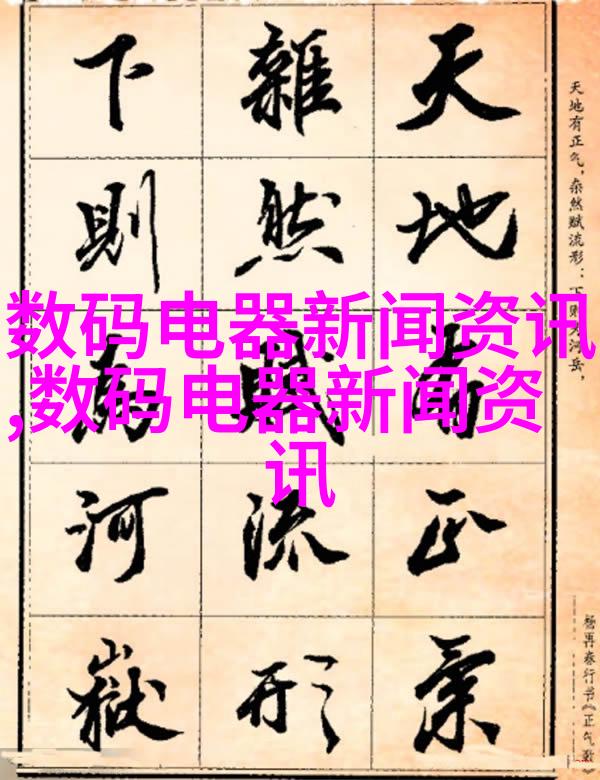 天地有正氣
雜然賦流形
下則為河嶽
天地有正气，杂然赋流形：下则为河岳，
杨再春行书《正气歌》
数码电器新闻资讯
,数码电器新闻资
讯